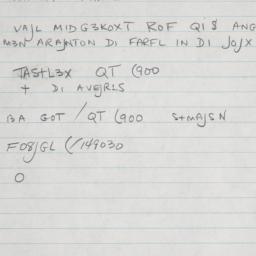 VAJL MIDG3KOXT ROF QI$ ANG
M3N ARAJNTON DI FARFL IN DI JOJX
TASTL3X QT (900
+ DI AVGRLS
BA GOT / QT (900 S+MAJSN
FO8JGL (/149030
O